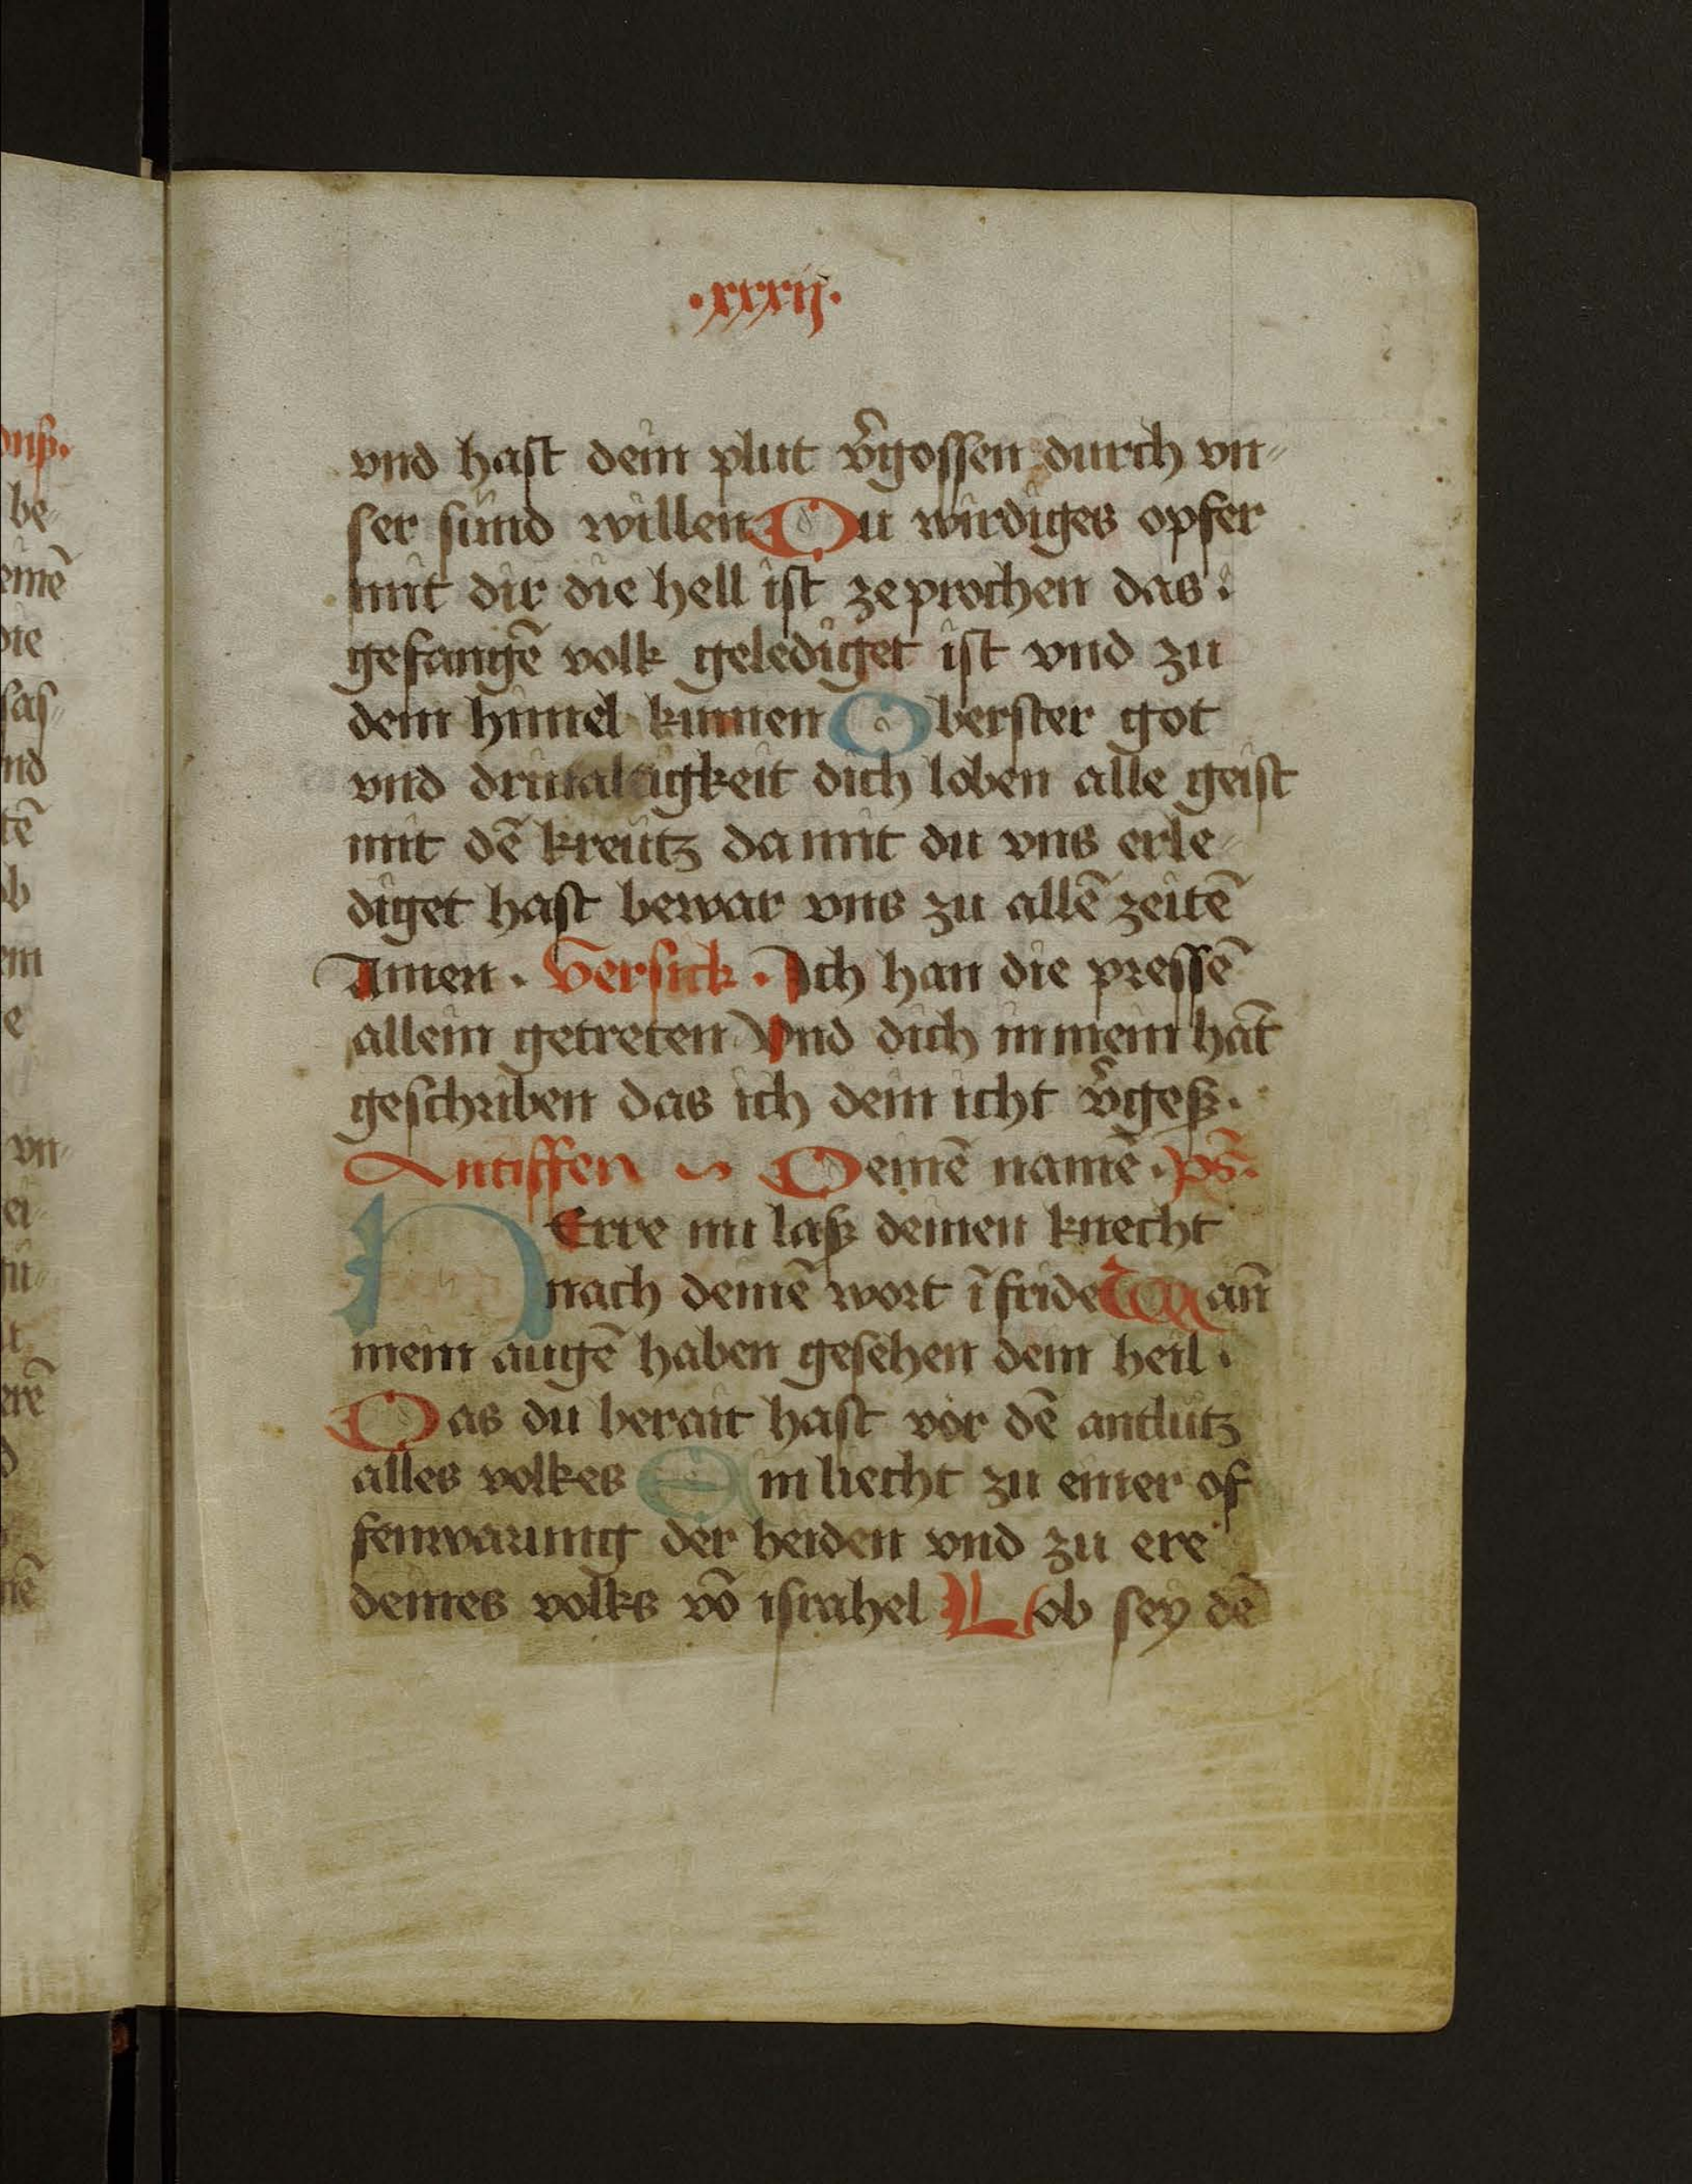 ·xxxij·
vnd hast dein plut v̄gossen durch vn-
ser sünd willen Du wirdiges opfer
mit dir die hell ist zeprochen das
gefangē volk gelediget ist vnd zu
dem himel kumen Oberster got
vnd driualtigkeit dich loben alle geist
mit dē kreütz da mit du vns erle-
diget hast bewar vns zu allē zeitē
Amen · Versick · Ich han die pressē
allein getreten Vnd dich in mein hāt
geschriben das ich dein icht v̄geß ·
Antiffen Deinē namē · ps̄ ·
HErre nu laß deinen knecht
nach deinē wort ī fride Wan̄
mein augē haben gesehen dein heil ·
Das du berait hast vor dē antlütz
alles volkes Ein liecht zu einer of
fenwarung der heiden vnd zu ere
deines volks vō israhel Lob sey dē